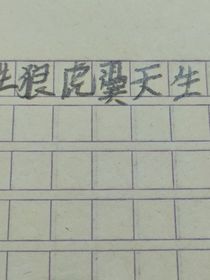 生狠虎翼天生